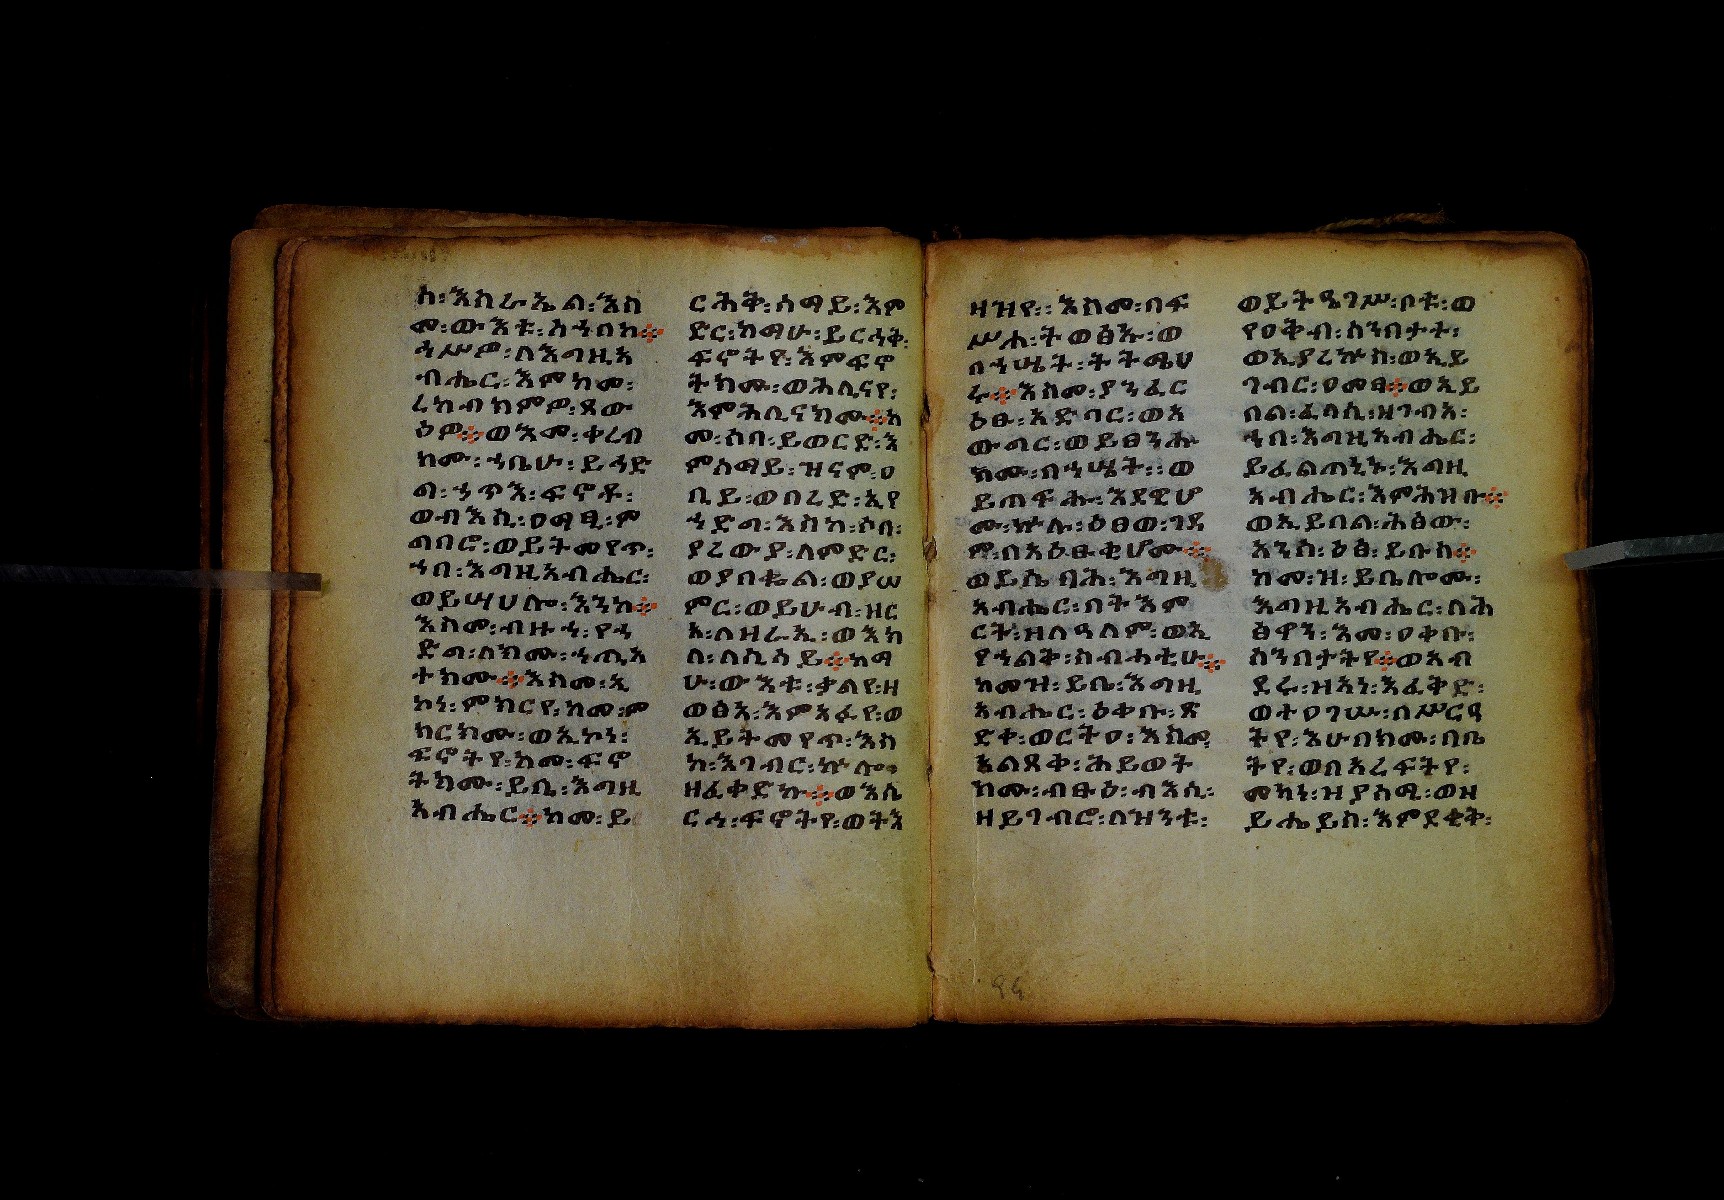 ከ፡እስራኤል፡እስ
መ፡ውእቱ፡አኀበከ፨
ኀሥዎ፡ለእግዚአ
ብሔር፡እምከመ፡
ረከብክምዎ፡ጸው
ዕዎ፨ወእመ፡ቀረብ
ከሙ፡ኀቤሁ፡ይኅድ
ግ፡ኀጥእ፡ፍኖቶ፡
ወብእሲ፡ዐማፂ፡ም
ግባሮ፡ወይትመየጥ፡
ኀበ፡እግዚአብሔር፡
ወይሣህሎ፡እንከ፨
እስመ፡ብዙኀ፡የኀ
ድግ፡ለክሙ፡ኀጢአ
ተክሙ፨እስመ፡ኢ
ኮነ፡ምክርየ፡ከመ፡ም
ክርክሙ፡ወኢኮነ፡
ፍኖትየ፡ከመ፡ፍኖ
ትክሙ፡ይቢ፡እግዚ
አብሔር፨ከመ፡ይ
ርሕቅ፡ሰማይ፡እም
ድር፡ከማሁ፡ይርኅቅ፡
ፍኖትየ፡እምፍኖ
ትክሙ፡ወሕሊናየ፡
እምሕሊናክሙ፨ከ
መ፡ሰበ፡ይወርድ፡እ
ምሰማይ፡ዝናም፡ዐ
ቢይ፡ወበረድ፡ኢየ
ኀድግ፡እስከ፡ሶበ፡
ያረውያ፡ለምድር፡
ወያበቍል፡ወያሠ
ምር፡ወይሁብ፡ዘር
አ፡ለዘራኢ፡ወእክ
ለ፡ለሲሳይ፨ከማ
ሁ፡ውእቱ፡ቃልየ፡ዘ
ወፅአ፡እምአፉየ፡ወ
ኢይትመየጥ፡እስ
ከ፡እገብር፡ኵሎ፡
ዘፈቀድኩ፨ወእሴ
ርሐ፡ፍኖትየ፡ወትእ
ዛዝየ፡፡እስመ፡በፍ
ሥሐ፡ትወፅኡ፡ወ
በኀሤት፡ትትሜሀ
ሩ፨እስመ፡ያንፈር
ዕፁ፡አድባር፡ወአ
ውግር፡ወይፀንሑ
ክሙ፡በኀሤት፡፡ወ
ይጠፍሑ፡እደዊሆ
ሙ፡ኵሉ፡ዕፀወ፡ገዳ
ም፡በአዕፁቂሆሙ፨
ወይሴባሕ፡እግዚ
አብሔር፡በትእም
ርት፡ዘለዓለም፡ወኢ
የኀልቅ፡ስብሓቲሁ፨
ከመዝ፡ይቤ፡እግዚ
አብሔር፡ዕቀቡ፡ጽ
ድቀ፡ወርትዐ፡እስመ
አልጸቀ፡ሕይወት
ክሙ፡ብፁዕ፡ብእሲ፡
ዘይገብሮ፡ለዝንቱ፡
ወይትዔገሥ፡ቦቱ፡ወ
የዐቅብ፡ሰንበታት፡
ወኢያረኵስ፡ወኢይ
ገብር፡ዐመፃ፨ወኢይ
በል፡ፈላሲ፡ዘገብአ፡
ኀበ፡እግዚአብሔር፡
ይፈልጠኒኑ፡እግዚ
አብሔር፡እምሕዝቡ፨
ወኢይበል፡ሕፅው፡
አንሰ፡ዕፅ፡ይቡስ፨
ከመ፡ዝ፡ይቤሎሙ፡
እግዚአብሔር፡ለሕ
ፅዋን፡እመ፡ዐቀቡ፡
ሰንበታትየ፨ወአብ
ደሩ፡ዝአነ፡እፈቅድ፡
ወተዐገሡ፡በሥርዓ
ትየ፡እሁበክሙ፡በቤ
ትየ፡ወበአረፍትየ፡
መካነ፡ዝያስሚ፡ወዘ
ይሔይስ፡እምደቂቅ፡